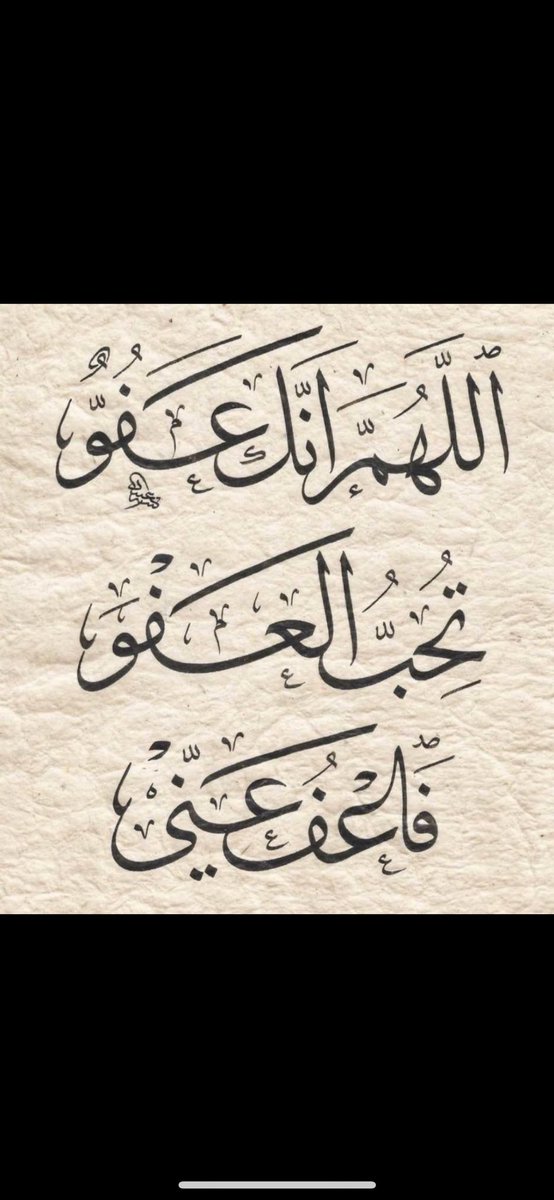 اللَّهُمَّ إنَّكَ عَفُوٌّ
تُحِبُّ الْعَفْوَ
فَاعْفُ عَنِّي